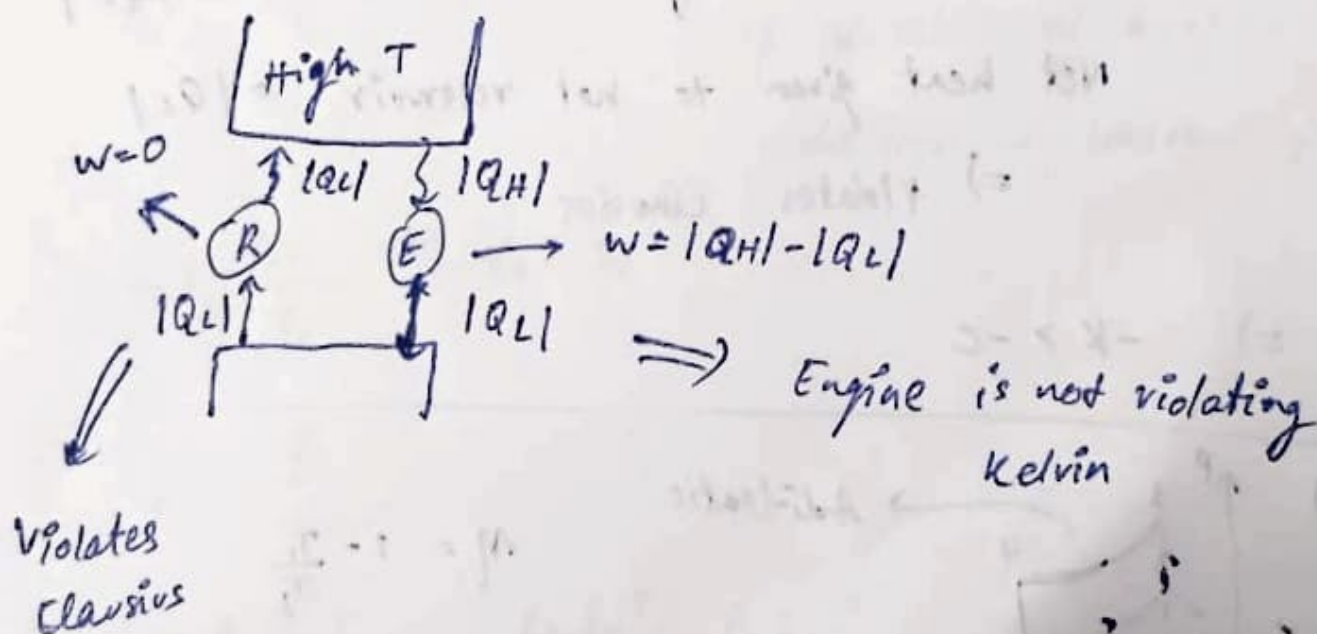 High T
w=0
|QL|
|QH|
R
E
w = |QH| - |QL|
|QL|
|QL|
⇒ Engine is not violating
Kelvin
Violates
Clausius